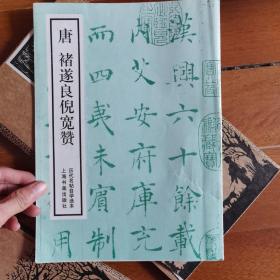 唐 褚遂良倪宽赞
历代名帖自学选本
上海书画出版社
漢興六十餘載
内艾安府庫充
四夷未賓制
用